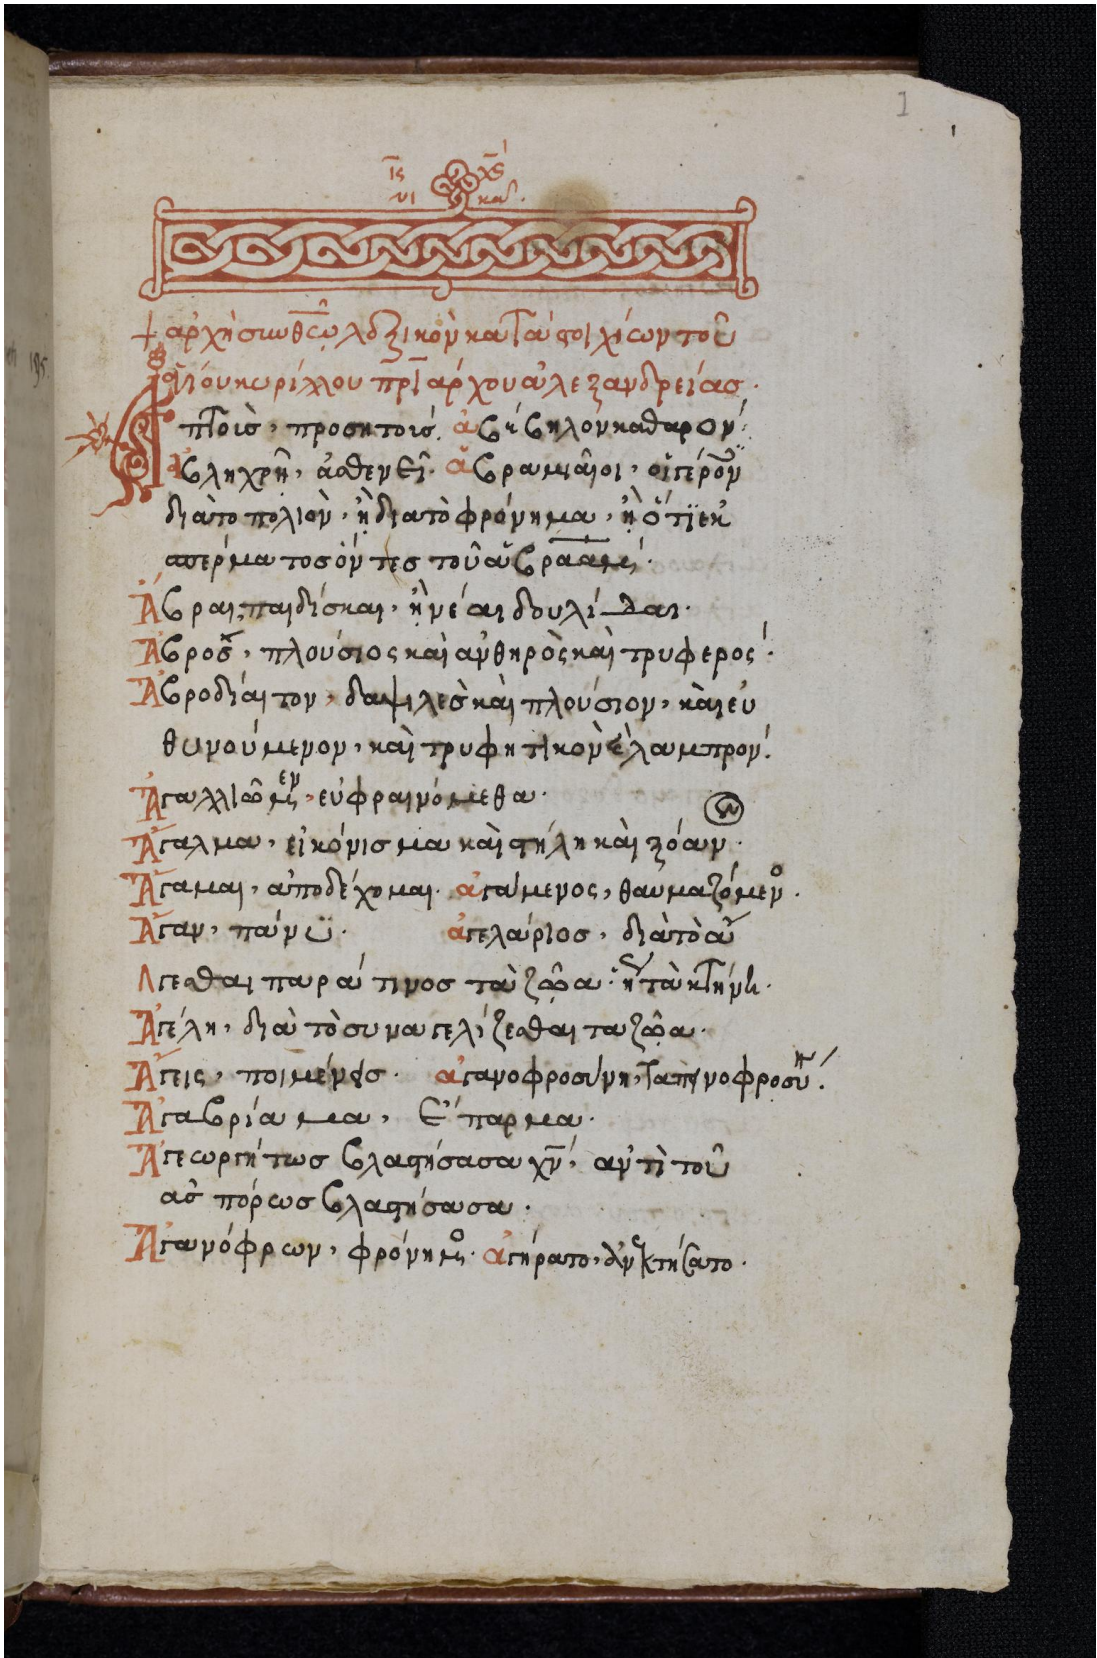 1
ις χς
νι κα
+ ἀρχὴ σὺν θεῷ λεξικὸν κατὰ στοιχίων τοῦ
ἁγίου κυρίλλου πρι αρχου ἀλεξανδρείας.
πτοις, προσητοις. ἀβέβηλον καθαρόν.
ἀβληχρὴ, ἀσθενεῖ. ἀβραμιαῖοι, οἱ περὸν
διὰ το πολιὸν, ἢ διατὸ φρόνημα, ἢ ὅτι ἐκ
σπέρματος ὄντες τοῦ ἀβραάμ.
Ἄβραι, παιδίσκαι, ἢ νέαι δουλίδαι.
Ἁβρος, πλούσιος καὶ ἀνθηρὸς καὶ τρυφερος.
Ἁβροδίαιτον, δαψιλὲς καὶ πλούσιον, καὶ εὐ
θυνούμενον, καὶ τρυφητικὸν λαμπρον.
Ἀγαλλιῶμεν, εὐφραινόμεθα.
Ἄγαλμα, εἰκόνισμα καὶ στήλη καὶ ξόαν.
Ἄγαμαι, ἀποδέχομαι. ἀγαίμενος, θαυμαζόμεν.
Ἄγαν, πάνϋ. ἀγελαίριος, διὰ τὸ αὐ
Λγεσθαι παραί τινος ταὶ ζῶα. ἢ τὰ κτήνη.
Ἀγέλη, διὰ τὸ συναγελίζεσθαι τα ζῶα.
Ἄγεις, ποιμένες. ἀγανοφροσύνη, ταπηνοφροσύ.
Ἀγαβρίαμα, ἔπαρμα.
Ἀγεωργήτως βλαστήσασα χν, αντὶ τοῦ
ασπόρως βλαστήσασα.
Ἀγανόφρων, φρόνημος. ἀγήρατο, ἀνεκτήσατο.